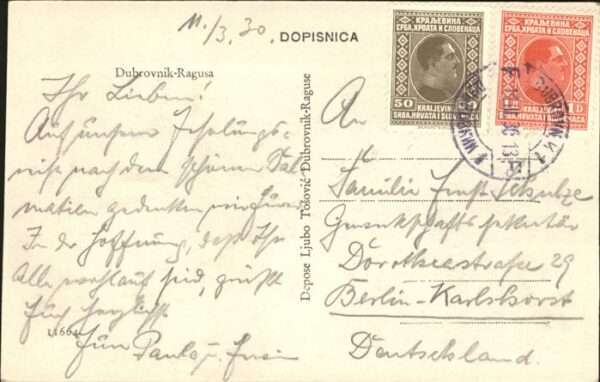 11./3.30.
DOPISNICA
Dubrovnik-Ragusa
Ihr Lieben!
Auf unserer Erholungs-
reise nach dem schönen Dal
matien gedenken wir Eurer
In der Hoffnung, daß Ihr
Alle wohlauf seid, grüßt
Euch herzlichst
Euer Paul u.
L1664
Depose Ljubo Tošović Dubrovnik-Raguse
КРАЉЕВИНА
СРБА, ХРВАТА И СЛОВЕНАЦА
50
KRALJEVINA
SRBA, HRVATA I SLOVENACA
КРАЉЕВИНА
СРБА, ХРВАТА И СЛОВЕНАЦА
1 D
KRALJEVINA
SRBA, HRVATA I SLOVENACA
DUBROVNIK 1
An
Familie Ernst Schulze
Gewerkschaftssekretär
Dorotheastraße 29
Berlin-Karlshorst
Deutschland.